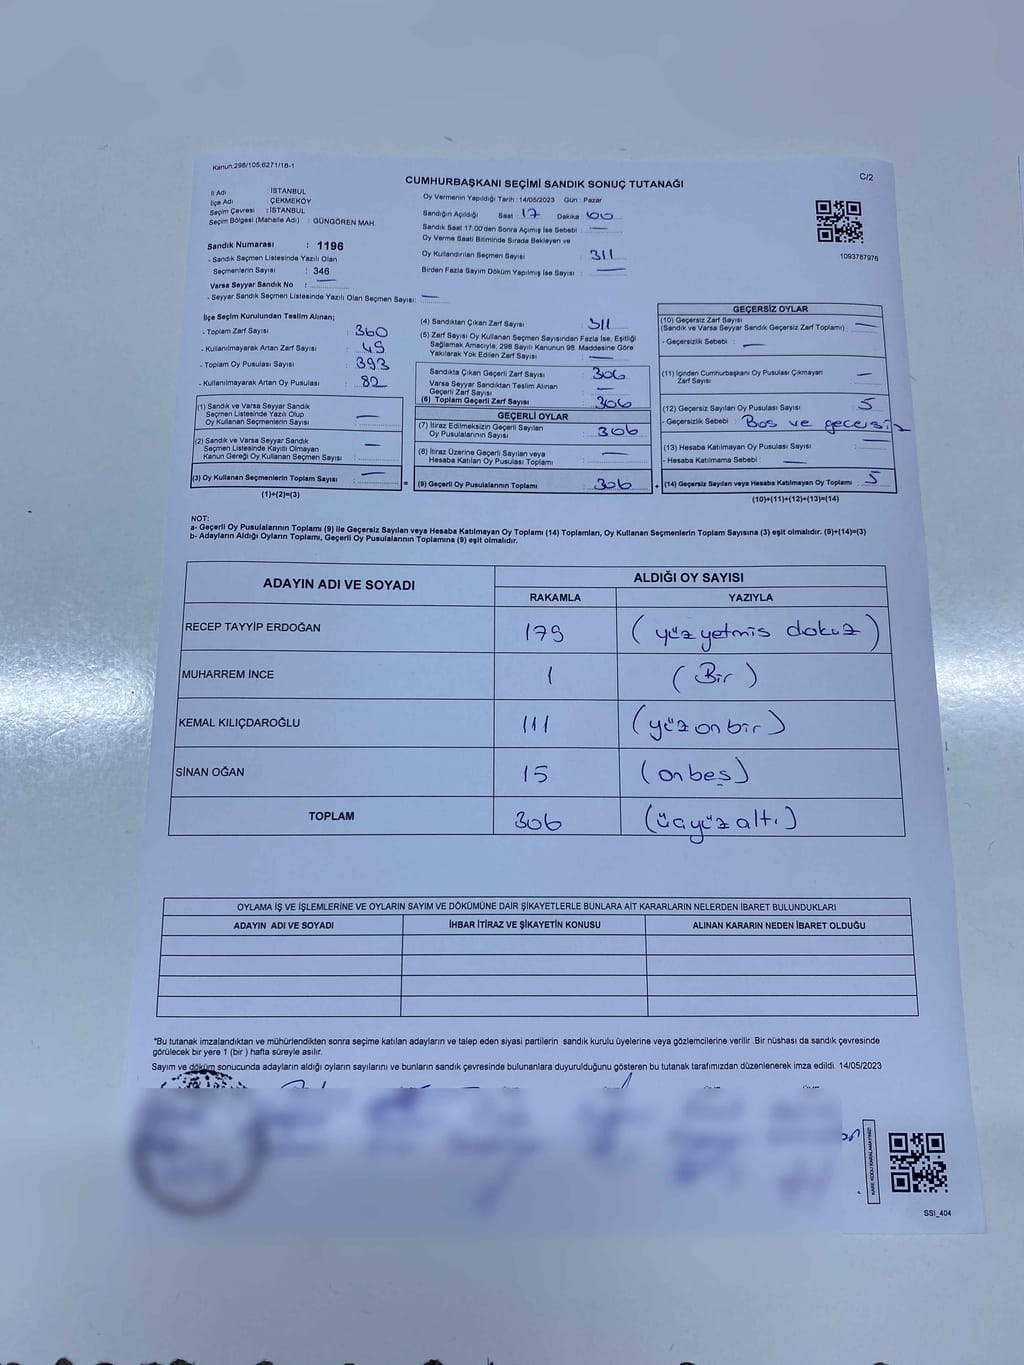 Kanun:298/105,6271/16-1
C/2
CUMHURBAŞKANI SEÇİMİ SANDIK SONUÇ TUTANAĞI
İl Adı : İSTANBUL
İlçe Adı : ÇEKMEKÖY
Seçim Çevresi : İSTANBUL
Seçim Bölgesi (Mahalle Adı) : GÜNGÖREN MAH.
Sandık Numarası : 1196
- Sandık Seçmen Listesinde Yazılı Olan
Seçmenlerin Sayısı : 346
Varsa Seyyar Sandık No : —
- Seyyar Sandık Seçmen Listesinde Yazılı Olan Seçmen Sayısı: —
Oy Vermenin Yapıldığı Tarih : 14/05/2023 Gün : Pazar
Sandığın Açıldığı Saat 17 Dakika 00
Sandık Saat 17:00'den Sonra Açımış İse Sebebi : —
Oy Verme Saati Bitiminde Sırada Bekleyen ve
Oy Kullandırılan Seçmen Sayısı : 311
Birden Fazla Sayım Döküm Yapılmış İse Sayısı : —
1093787976
İlçe Seçim Kurulundan Teslim Alınan;
- Toplam Zarf Sayısı : 360
- Kullanılmayarak Artan Zarf Sayısı : 49
- Toplam Oy Pusulası Sayısı : 393
- Kullanılmayarak Artan Oy Pusulası : 82
(1) Sandık ve Varsa Seyyar Sandık
Seçmen Listesinde Yazılı Olup
Oy Kullanan Seçmenlerin Sayısı : —
(2) Sandık ve Varsa Seyyar Sandık
Seçmen Listesinde Kayıtlı Olmayan
Kanun Gereği Oy Kullanan Seçmen Sayısı : —
(3) Oy Kullanan Seçmenlerin Toplam Sayısı : —
(1)+(2)=(3)
(4) Sandıktan Çıkan Zarf Sayısı : 311
(5) Zarf Sayısı Oy Kullanan Seçmen Sayısından Fazla İse, Eşitliği
Sağlamak Amacıyla, 298 Sayılı Kanunun 98. Maddesine Göre
Yakılarak Yok Edilen Zarf Sayısı : —
Sandıkta Çıkan Geçerli Zarf Sayısı : 306
Varsa Seyyar Sandıktan Teslim Alınan
Geçerli Zarf Sayısı : —
(6) Toplam Geçerli Zarf Sayısı : 306
GEÇERLİ OYLAR
(7) İtiraz Edilmeksizin Geçerli Sayılan
Oy Pusulalarının Sayısı : 306
(8) İtiraz Üzerine Geçerli Sayılan veya
Hesaba Katılan Oy Pusulası Toplamı : —
= (9) Geçerli Oy Pusulalarının Toplamı : 306
GEÇERSİZ OYLAR
(10) Geçersiz Zarf Sayısı
(Sandık ve Varsa Seyyar Sandık Geçersiz Zarf Toplamı) : —
- Geçersizlik Sebebi : —
(11) İçinden Cumhurbaşkanı Oy Pusulası Çıkmayan
Zarf Sayısı : —
(12) Geçersiz Sayılan Oy Pusulası Sayısı : 5
- Geçersizlik Sebebi : Bos ve gecersiz
(13) Hesaba Katılmayan Oy Pusulası Sayısı : —
- Hesaba Katılmama Sebebi : —
+ (14) Geçersiz Sayılan veya Hesaba Katılmayan Oy Toplamı : 5
(10)+(11)+(12)+(13)=(14)
NOT:
a- Geçerli Oy Pusulalarının Toplamı (9) ile Geçersiz Sayılan veya Hesaba Katılmayan Oy Toplamı (14) Toplamları, Oy Kullanan Seçmenlerin Toplam Sayısına (3) eşit olmalıdır. (9)+(14)=(3)
b- Adayların Aldığı Oyların Toplamı, Geçerli Oy Pusulalarının Toplamına (9) eşit olmalıdır.
ADAYIN ADI VE SOYADI ALDIĞI OY SAYISI
RAKAMLA YAZIYLA
RECEP TAYYİP ERDOĞAN 179 (yüzyetmis dokuz)
MUHARREM İNCE 1 (Bir)
KEMAL KILIÇDAROĞLU 111 (yüzonbir)
SİNAN OĞAN 15 (onbeş)
TOPLAM 306 (üçyüzaltı)
OYLAMA İŞ VE İŞLEMLERİNE VE OYLARIN SAYIM VE DÖKÜMÜNE DAİR ŞİKAYETLERLE BUNLARA AİT KARARLARIN NELERDEN İBARET BULUNDUKLARI
ADAYIN ADI VE SOYADI İHBAR İTİRAZ VE ŞİKAYETİN KONUSU ALINAN KARARIN NEDEN İBARET OLDUĞU
*Bu tutanak imzalandıktan ve mühürlendikten sonra seçime katılan adayların ve talep eden siyasi partilerin sandık kurulu üyelerine veya gözlemcilerine verilir .Bir nüshası da sandık çevresinde
görülecek bir yere 1 (bir ) hafta süreyle asılır.
Sayım ve döküm sonucunda adayların aldığı oyların sayılarını ve bunların sandık çevresinde bulunanlara duyurulduğunu gösteren bu tutanak tarafımızdan düzenlenerek imza edildi. 14/05/2023
KARE KODU KARALAMAYINIZ!
SSİ_404